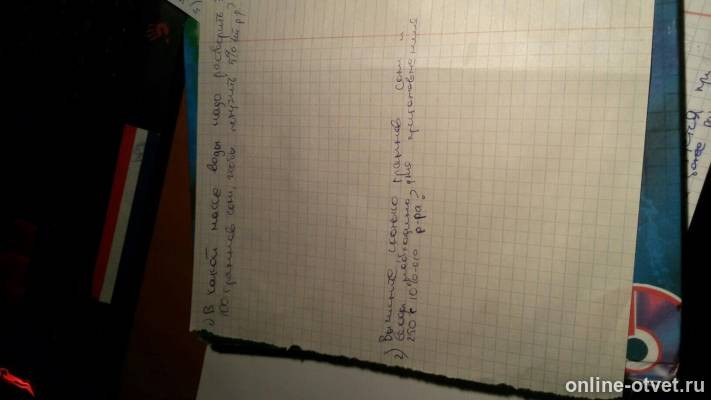 1) В какой массе воды надо растворить
100 граммов соли, чтобы получить 5% ый р.р?
2) Вычислите сколько граммов соли и
воды необходимо для приготовления
250 г 10%-ого р-ра?
5)
при
online-otvet.ru